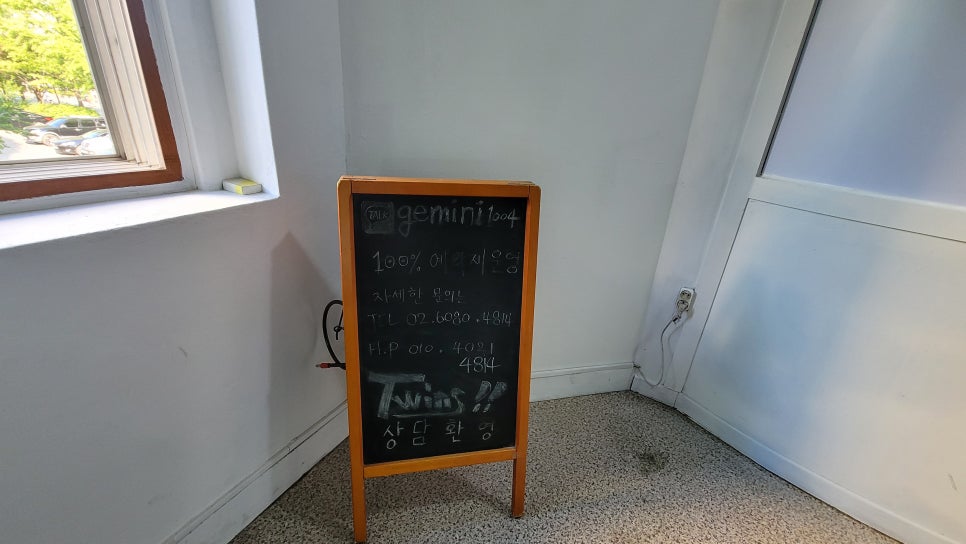 TALK gemini1004
100% 예약제운영
자세한 문의는
TEL 02.6080.4814
H.P 010.4021
4814
Twins!!
상담환영